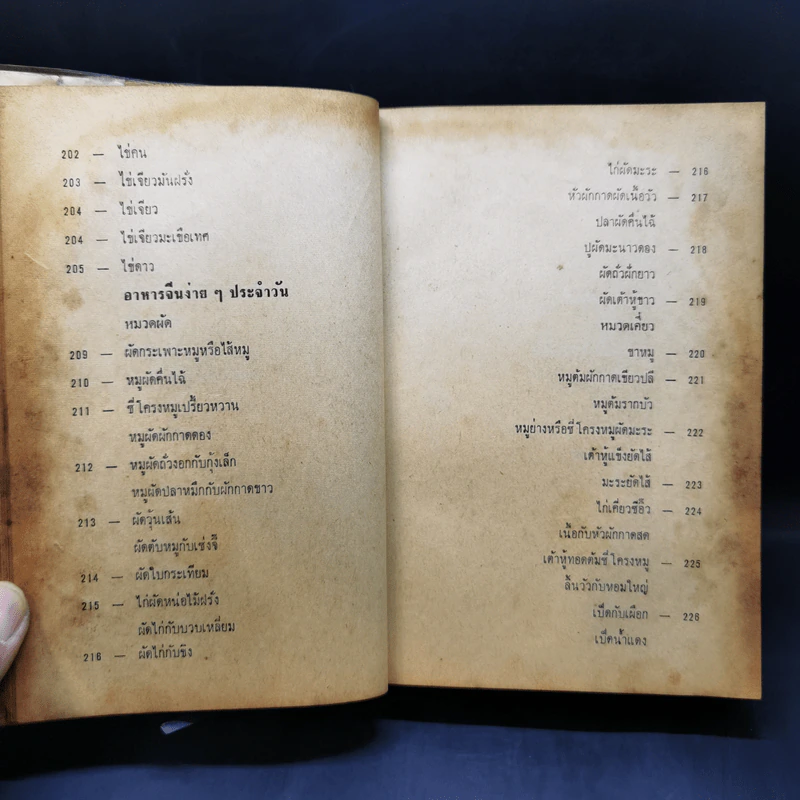 202 — ไข่คน
203 — ไข่เจียวมันฝรั่ง
204 — ไข่เจียว
204 — ไข่เจียวมะเขือเทศ
205 — ไข่ดาว
อาหารจีนง่าย ๆ ประจำวัน
หมวดผัด
209 — ผัดกระเพาะหมูหรือไส้หมู
210 — หมูผัดคื่นไฉ่
211 — ซี่โครงหมูเปรี้ยวหวาน
หมูผัดผักกาดดอง
212 — หมูผัดถั่วงอกกับกุ้งเล็ก
หมูผัดปลาหมึกกับผักกาดขาว
213 — ผัดวุ้นเส้น
ผัดตับหมูกับเซ่งจี๊
214 — ผัดใบกระเทียม
215 — ไก่ผัดหน่อไม้ฝรั่ง
ผัดไก่กับบวบเหลี่ยม
216 — ผัดไก่กับขิง
ไก่ผัดมะระ — 216
หัวผักกาดผัดเนื้อวัว — 217
ปลาผัดคื่นไฉ่
ปูผัดมะนาวดอง — 218
ผัดถั่วฝักยาว
ผัดเต้าหู้ขาว — 219
หมวดเคี่ยว
ขาหมู — 220
หมูต้มผักกาดเขียวปลี — 221
หมูต้มรากบัว
หมูย่างหรือซี่โครงหมูผัดมะระ — 222
เต้าหู้แข็งยัดไส้
มะระยัดไส้ — 223
ไก่เคี่ยวซีอิ๊ว — 224
เนื้อกับหัวผักกาดสด
เต้าหู้ทอดต้มซี่โครงหมู — 225
ลิ้นวัวกับหอมใหญ่
เป็ดกับเผือก — 226
เป็ดน้ำแดง